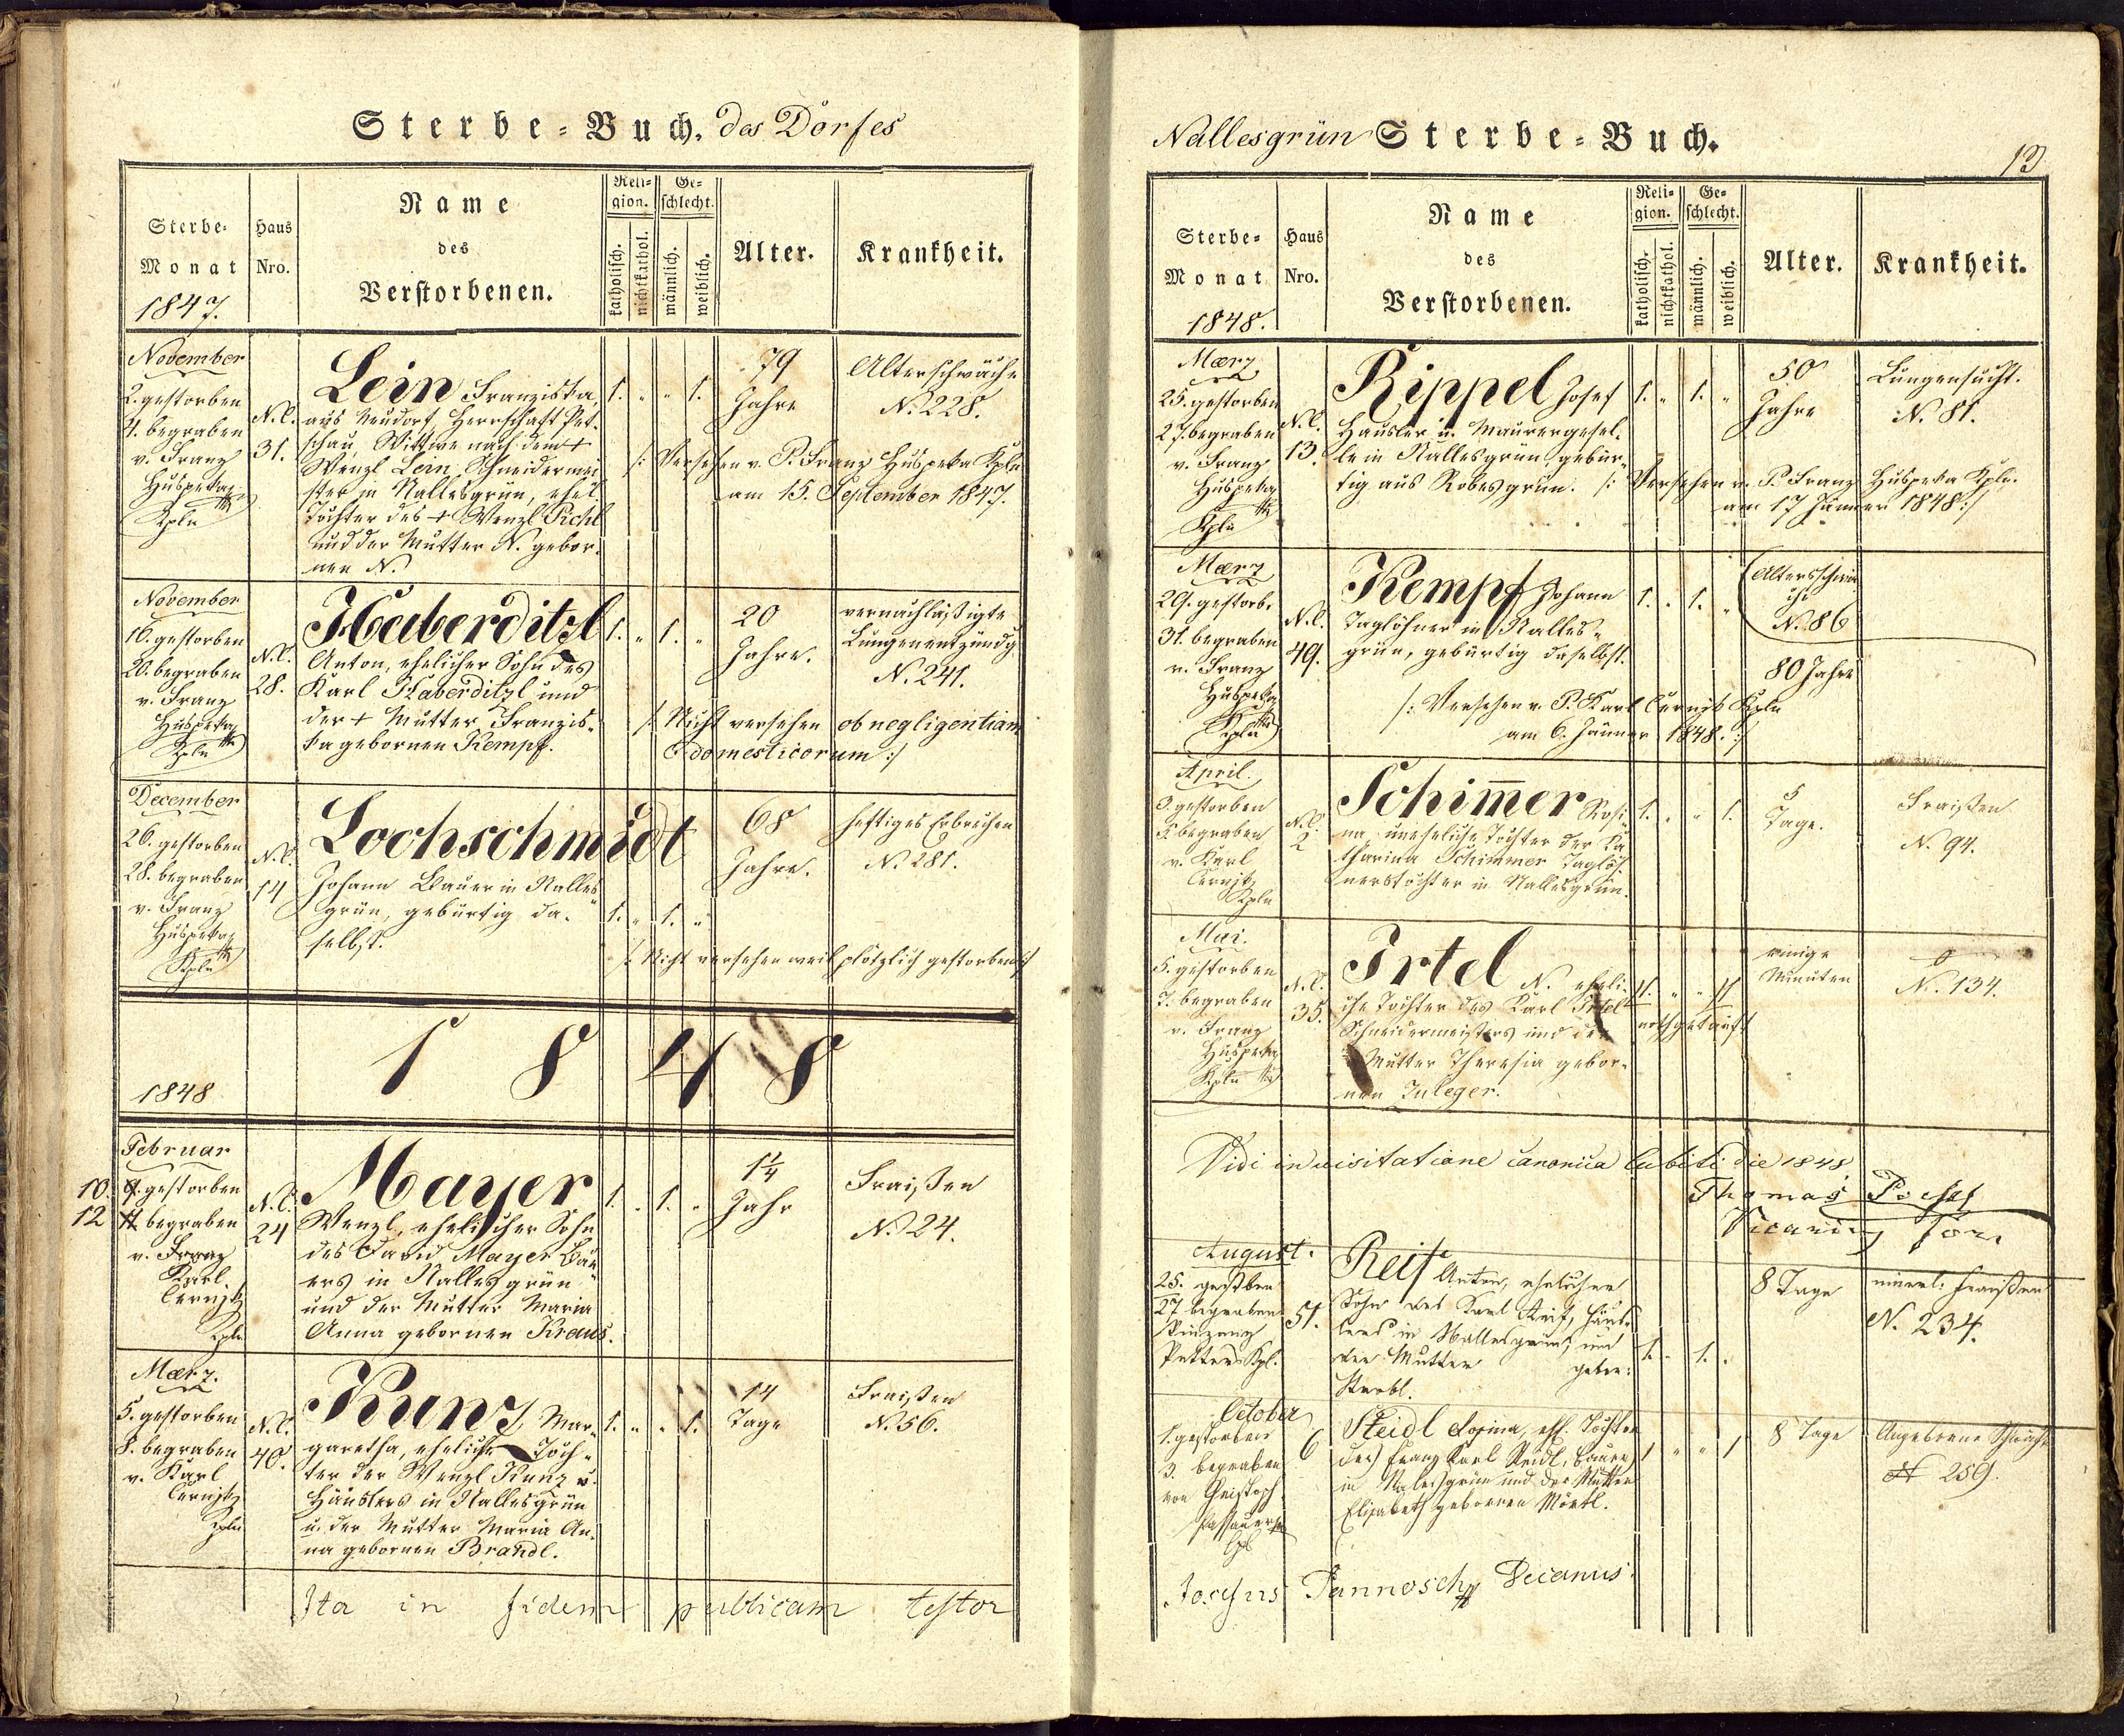 Sterbe-Buch. des Dorfes
Sterbe-
Monat
1847.
Haus
Nro.
Name
des
Verstorbenen.
Reli-
gion.
katholisch.
nichtkathol.
Ge-
schlecht.
männlich.
weiblich.
Alter.
Krankheit.
November
2. gestorben
4. begraben
v. Franz
Huspeka
Kpln
N.C.
31.
Lein Franziska,
aus Neudorf Herrschaft Pet-
schau, Wittwe nach dem +
Wenzl Lein Schneidermei
ster in Nallesgrün, ehel.
Tochter des + Wenzl Pichl
und der Mutter N. gebor-
nen N.
1. " " 1.
79
Jahre
Altersschwäche
N. 228.
/: Versehen v. P. Franz Huspeka Kpln
am 15. September 1847.
November
18. gestorben
20. begraben
v. Franz
Huspeka
Kpln
N.C.
28.
Haberditzl
Anton, ehelicher Sohn des
Karl Haberditzl und
der + Mutter Franzis-
ka gebornen Kempf.
1. " 1. "
20
Jahre.
vernachläßigte
Lungenentzündg
N. 241.
/: Nicht versehen ob negligentiam
domesticorum :/
December
26. gestorben
28. begraben
v. Franz
Huspeka
Kpln
N.C.
14
Lochschmidt
Johann Bauer in Nalles
grün, gebürtig da-
selbst.
1. " 1. "
68
Jahre.
heftiges Erbrechen
N. 281.
/: Nicht versehen weil plötzlich gestorben :/
1848
1848
Februar
10. 9. gestorben
12 11 begraben
v. Franz
Karl
Czernitz
Kpln
N.C.
24
Mayer
Wenzl, ehelicher Sohn
des David Mayer Bau
ers in Nallesgrün
und der Mutter Maria
Anna gebornen Kraus.
1. " 1. "
1 1/4
Jahr
Fraißen
N. 24.
Maerz.
5. gestorben
8. begraben
v. Karl
Czernitz
Kpln
N.C.
40.
Kunz Mar-
garetha, eheliche Toch-
ter der Wenzl Kunz
Häuslers in Nallesgrün
u. der Mutter Maria An-
na gebornen Brandl.
1. " " 1.
14
Tage
Fraißen
N. 56.
Ita in fidem publicam testor
Nallesgrün Sterbe-Buch.
13
Sterbe-
Monat
1848.
Haus
Nro.
Name
des
Verstorbenen.
Reli-
gion.
katholisch.
nichtkathol.
Ge-
schlecht.
männlich.
weiblich.
Alter.
Krankheit.
Maerz
25. gestorben
27. begraben
v. Franz
Huspeka
Kpln
N.C.
13.
Rippel Josef
Häusler u. Maurergesel-
le in Nallesgrün, gebür-
tig aus Robesgrün.
1. " 1. "
50
Jahre
Lungensucht.
N. 81.
/: Versehen v. P. Franz Huspeka Kpln.
am 17 Jänner 1848 :/
Maerz
29. gestorb.
31. begraben
v. Franz
Huspeka
Kpln
N.C.
49.
Kempf Johann
Taglöhner in Nalles-
grün, gebürtig daselbst.
1. " 1. "
Altersschwä
che
N. 86
80 Jahre
/: Versehen v. P. Karl Czernitz Kpln
am 6. Jänner 1848. :/
April.
gestorben
begraben
v. Karl
Czernitz
Kpln
N.C.
2
Schimmer Rosi-
na uneheliche Tochter der Ka
tharina Schimmer Taglöh
nerstochter in Nallesgrün.
1. " " 1.
5
Tage.
Fraißen
N. 94.
Mai.
5. gestorben
7. begraben
v. Franz
Huspeka
Kpln
N.C.
35.
Irtel N. eheli-
che Tochter des Karl Irtel
Schneidermeisters und der
Mutter Theresia gebor-
nen Zuleger.
1. " " 1
nothgetauft
einige
Minuten
N. 134.
Vidi in visitatione canonica Cubiti die 1848
Thomas
Vicarius for.
August.
25. gestorben
27 begraben
Vinzenz
Petters Kpl.
51.
Reif Anton, ehelicher
Sohn des Karl Reif, Häus-
lers in Nallesgrün, und
der Mutter gebor:
Strobl.
1. " 1. "
8 Tage
innerl. Fraißen
N. 234.
October
1. gestorben
3. begraben
von Christoph
Passauer
Kpl
6
Reidl Rosina, ehl. Tochter
des Franz Karl Reidl, Bauer
in Nallesgrün und der Mutter
Elisabeth gebornen Möckl.
1 " " 1
8 Tage
Angeborne Schwäche
N 259.
Josephus Pannosch Decanus